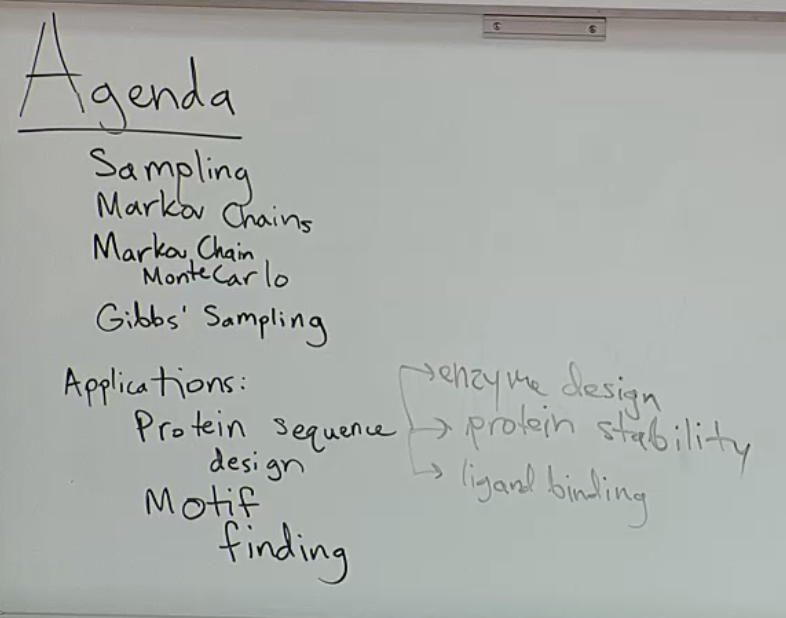 Agenda
Sampling
Markov Chains
Markov Chain
Monte Carlo
Gibbs' Sampling
Applications:
Protein sequence
design
Motif
finding
→ enzyme design
→ protein stability
→ ligand binding